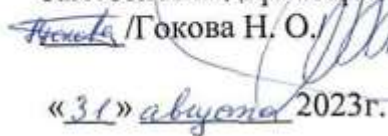 /Гокова Н. О./
«31» августа 2023г.